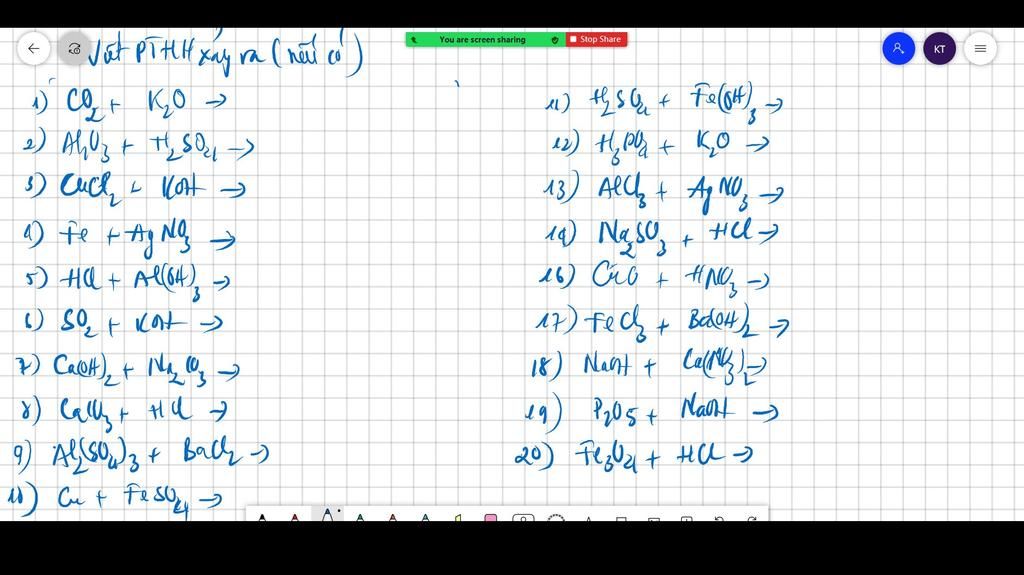 You are screen sharing
Stop Share
KT
Viết PTHH xảy ra (nếu có)
1) CO2 + K2O →
2) Al2O3 + H2SO4 →
3) CuCl2 + KOH →
4) Fe + AgNO3 →
5) HCl + Al(OH)3 →
6) SO2 + KOH →
7) Ca(OH)2 + Na2CO3 →
8) CaCO3 + HCl →
9) Al2(SO4)3 + BaCl2 →
10) Cu + FeSO4 →
11) H2SO4 + Fe(OH)3 →
12) H3PO4 + K2O →
13) AlCl3 + AgNO3 →
14) Na2SO3 + HCl →
16) CuO + HNO3 →
17) FeCl3 + Ba(OH)2 →
18) NaOH + Ca(NO3)2 →
19) P2O5 + NaOH →
20) Fe3O4 + HCl →